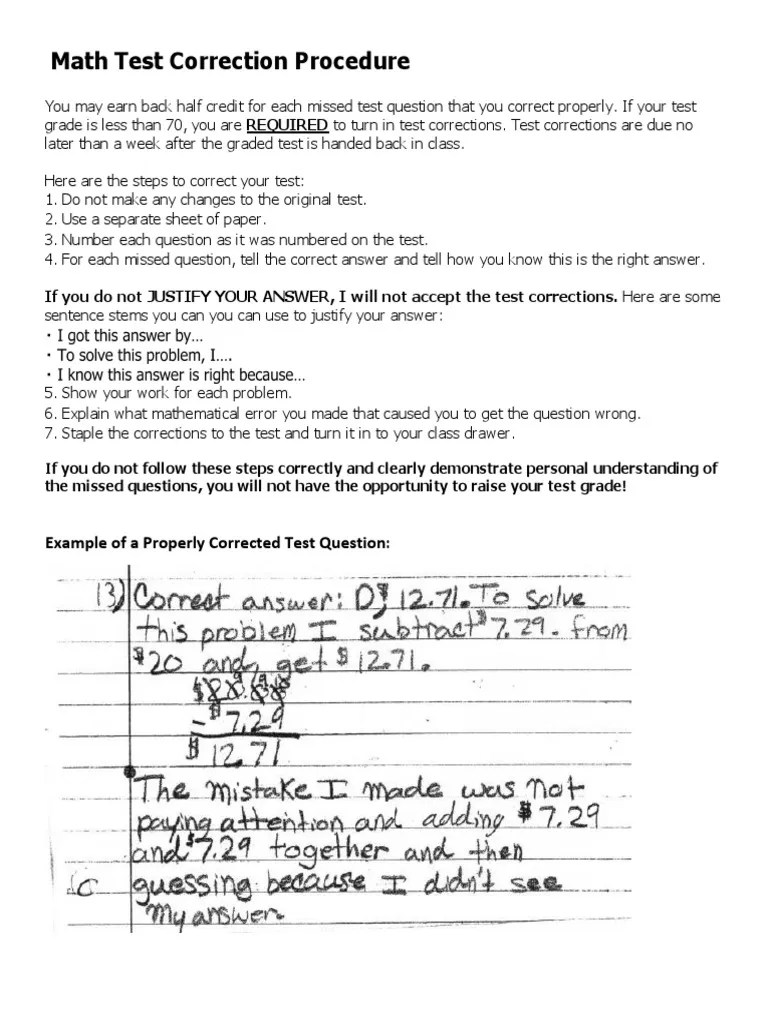 Math Test Correction Procedure
You may earn back half credit for each missed test question that you correct properly. If your test
grade is less than 70, you are REQUIRED to turn in test corrections. Test corrections are due no
later than a week after the graded test is handed back in class.
Here are the steps to correct your test:
1. Do not make any changes to the original test.
2. Use a separate sheet of paper.
3. Number each question as it was numbered on the test.
4. For each missed question, tell the correct answer and tell how you know this is the right answer.
If you do not JUSTIFY YOUR ANSWER, I will not accept the test corrections. Here are some
sentence stems you can you can use to justify your answer:
· I got this answer by…
· To solve this problem, I….
· I know this answer is right because…
5. Show your work for each problem.
6. Explain what mathematical error you made that caused you to get the question wrong.
7. Staple the corrections to the test and turn it in to your class drawer.
If you do not follow these steps correctly and clearly demonstrate personal understanding of
the missed questions, you will not have the opportunity to raise your test grade!
Example of a Properly Corrected Test Question:
13) Correct answer: D) $12.71. To solve
this problem I subtract $7.29. from
$20 and, get $12.71.
- $7.29
$12.71
The mistake I made was not
paying attention and adding $7.29
and $7.29 together and then
guessing because I didn't see
my answer.